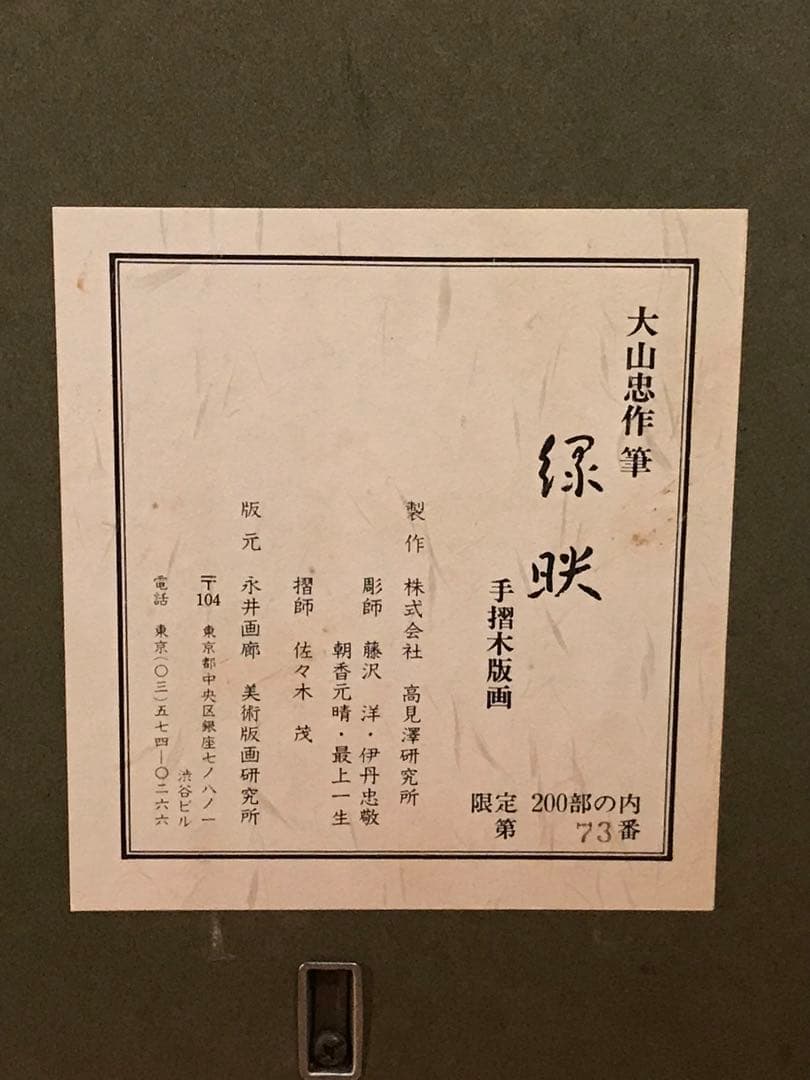 大山忠作筆
緑映
手摺木版画
限定 200部の内
第 73番
製作 株式会社 高見澤研究所
彫師 藤沢 洋・伊丹忠敬
朝香元晴・最上一生
摺師 佐々木 茂
版元 永井画廊 美術版画研究所
〒104 東京都中央区銀座七ノ八ノ一
渋谷ビル
電話 東京(〇三)五七四―〇二六六